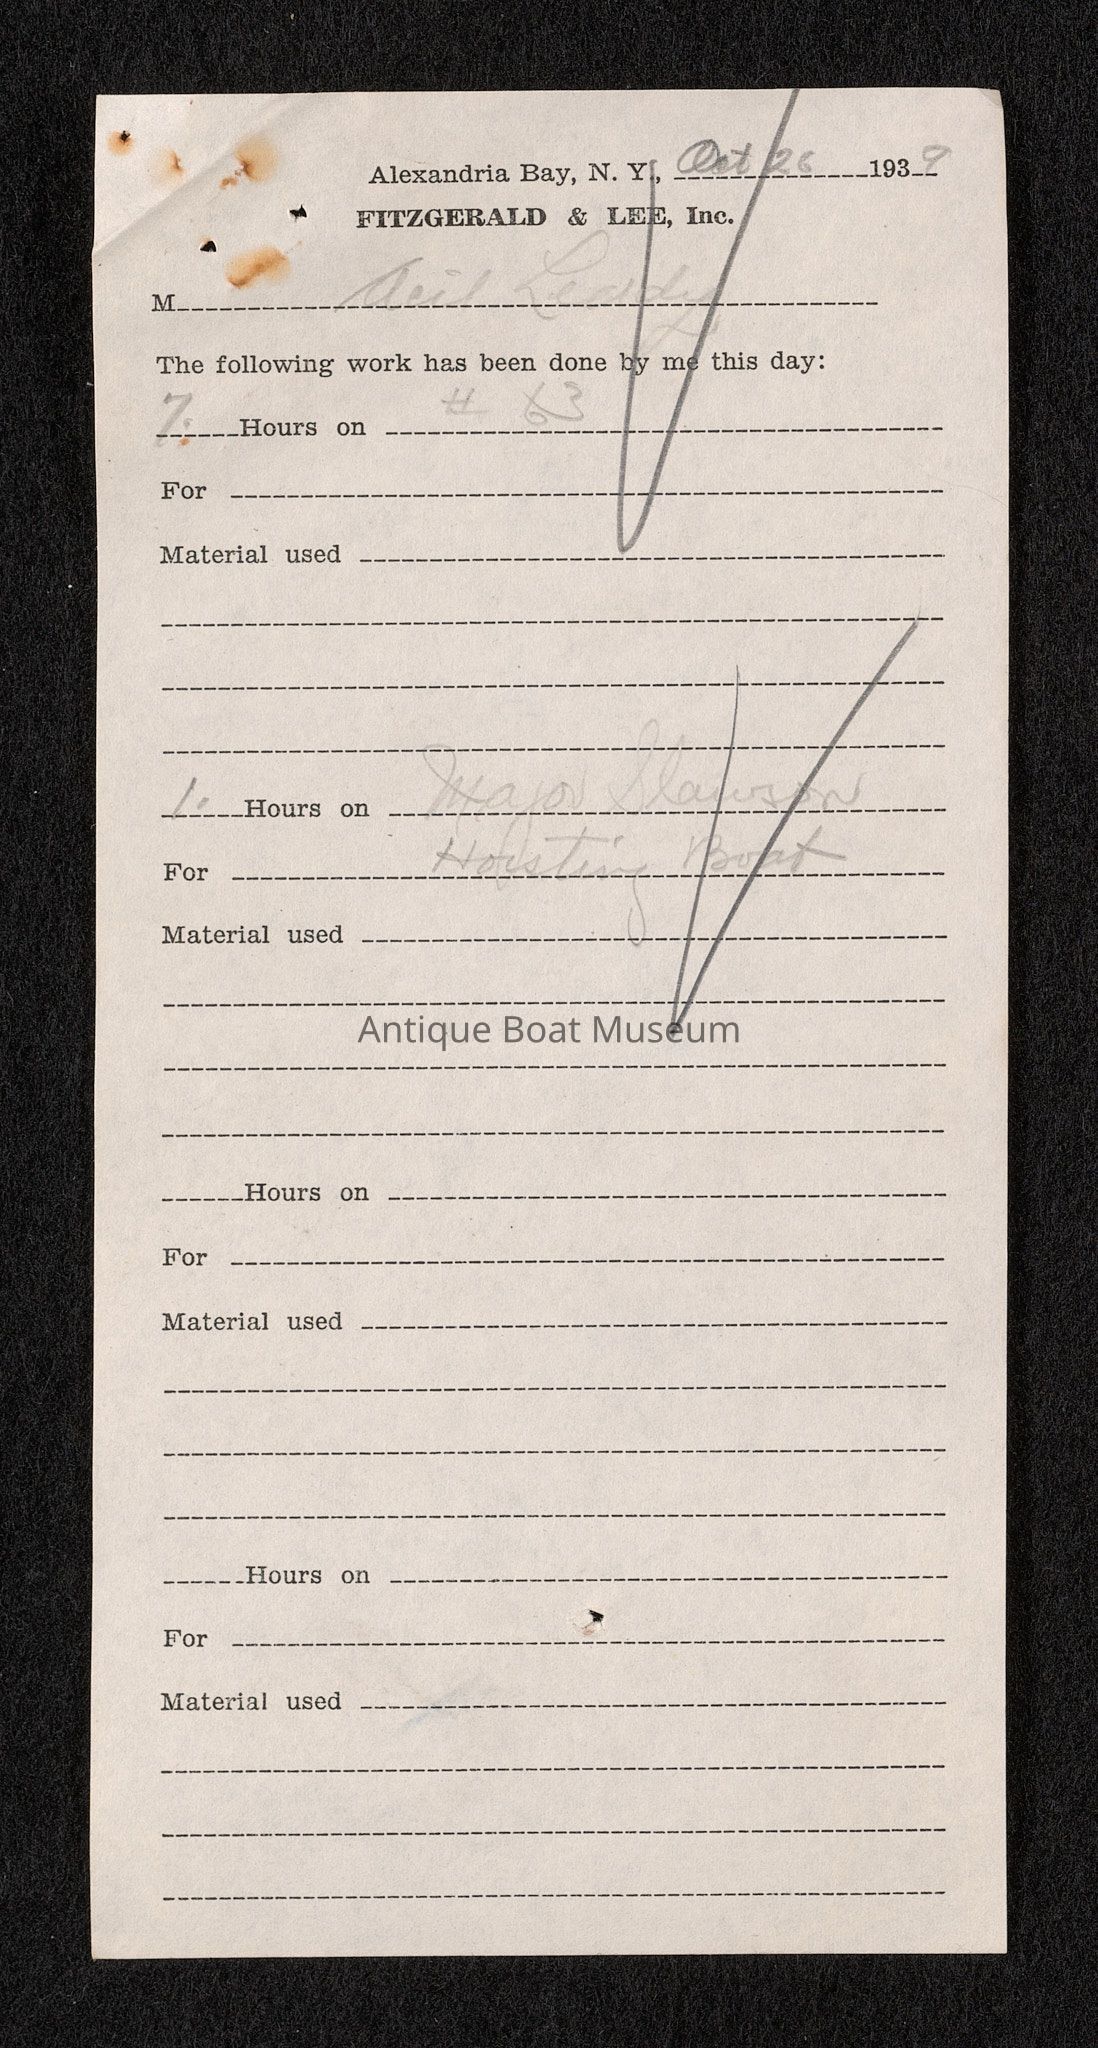 Alexandria Bay, N. Y., Oct 26 1939
FITZGERALD & LEE, Inc.
M Neil
The following work has been done by me this day:
7. Hours on # 63
For
Material used
1. Hours on Major Slawson
For Hoisting Boat
Material used
Antique Boat Museum
Hours on
For
Material used
Hours on
For
Material used